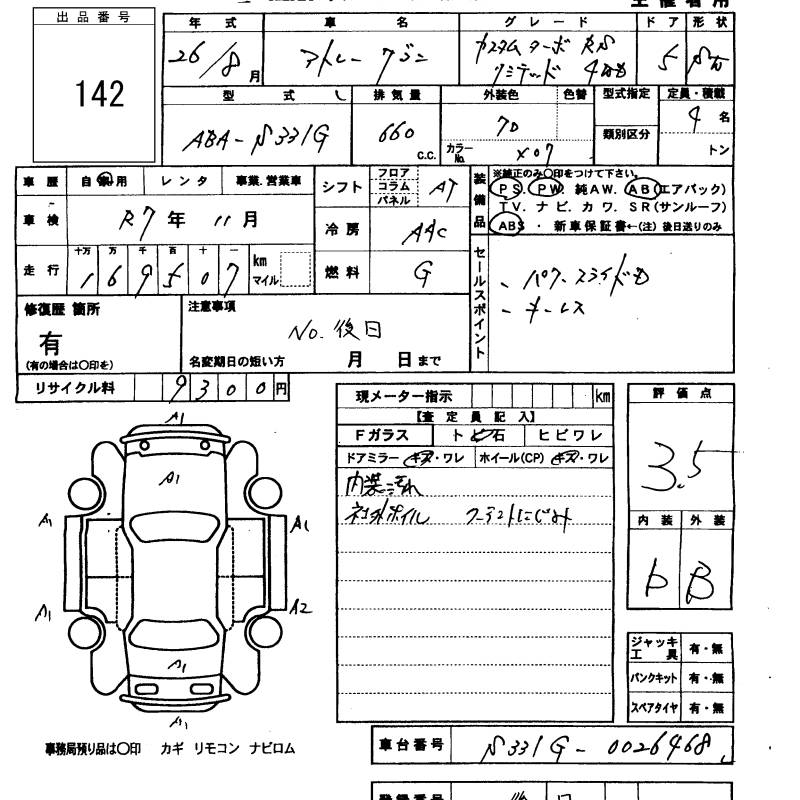 出品番号
142
年式 車名 グレード ドア 形状
26/8月 アトレーワゴン カスタムターボRS リミテッド 4WD 5 バン
型式 排気量 外装色 色替 型式指定 定員・積載
ABA-S331G 660 c.c. 類別区分 4名
カラーNo. X07 トン
車歴 自家用 レンタ 事業.営業車
シフト フロア コラム パネル AT
装備品 ※純正のみ〇印をつけて下さい。
PS. PW. 純AW. AB(エアバック)
TV. ナビ. カワ. SR(サンルーフ)
ABS ・ 新車保証書←(注)後日送りのみ
車検 R7年 11月
冷房 AAC
走行 十万 万 千 百 十 一
169507 km マイル
燃料 G
セールスポイント
- パワースライドド
- キーレス
修復歴 箇所
有
(有の場合は〇印を)
注意事項
No. 後日
名変期日の短い方 月 日まで
リサイクル料 9300円
現メーター指示 km
【査定員記入】
Fガラス トビ石 ヒビワレ
ドアミラー キズ・ワレ ホイール(CP) キズ・ワレ
内装汚れ
社外ホイル コーキングにじみ
評価点
3.5
内装 外装
b B
A1
A1
A1 A1
A1 A2
A1
A1
ジャッキ工具 有・無
パンクキット 有・無
スペアタイヤ 有・無
事務局預り品は〇印 カギ リモコン ナビロム
車台番号 S331G-0026468